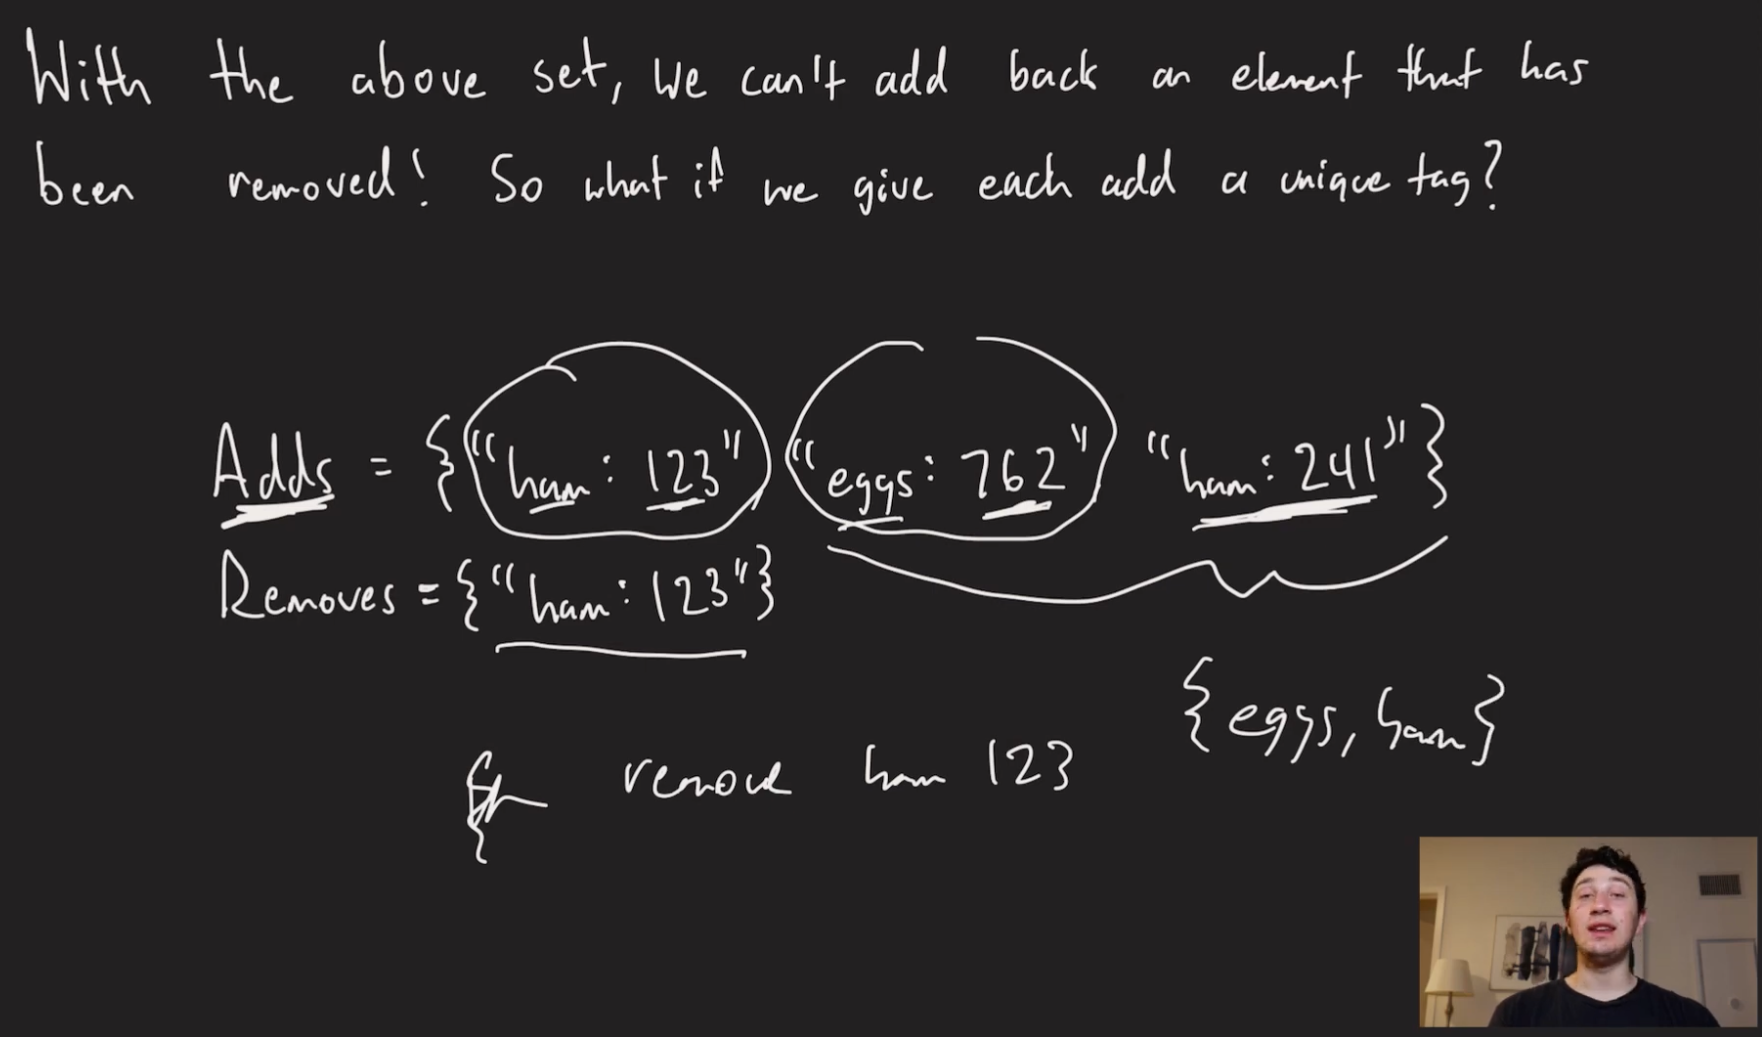 With the above set, we can't add back an element that has
been removed! So what if we give each add a unique tag?
Adds = {"ham: 123" "eggs: 762" "ham: 241"}
Removes = {"ham: 123"}
{eggs, ham}
remove ham 123